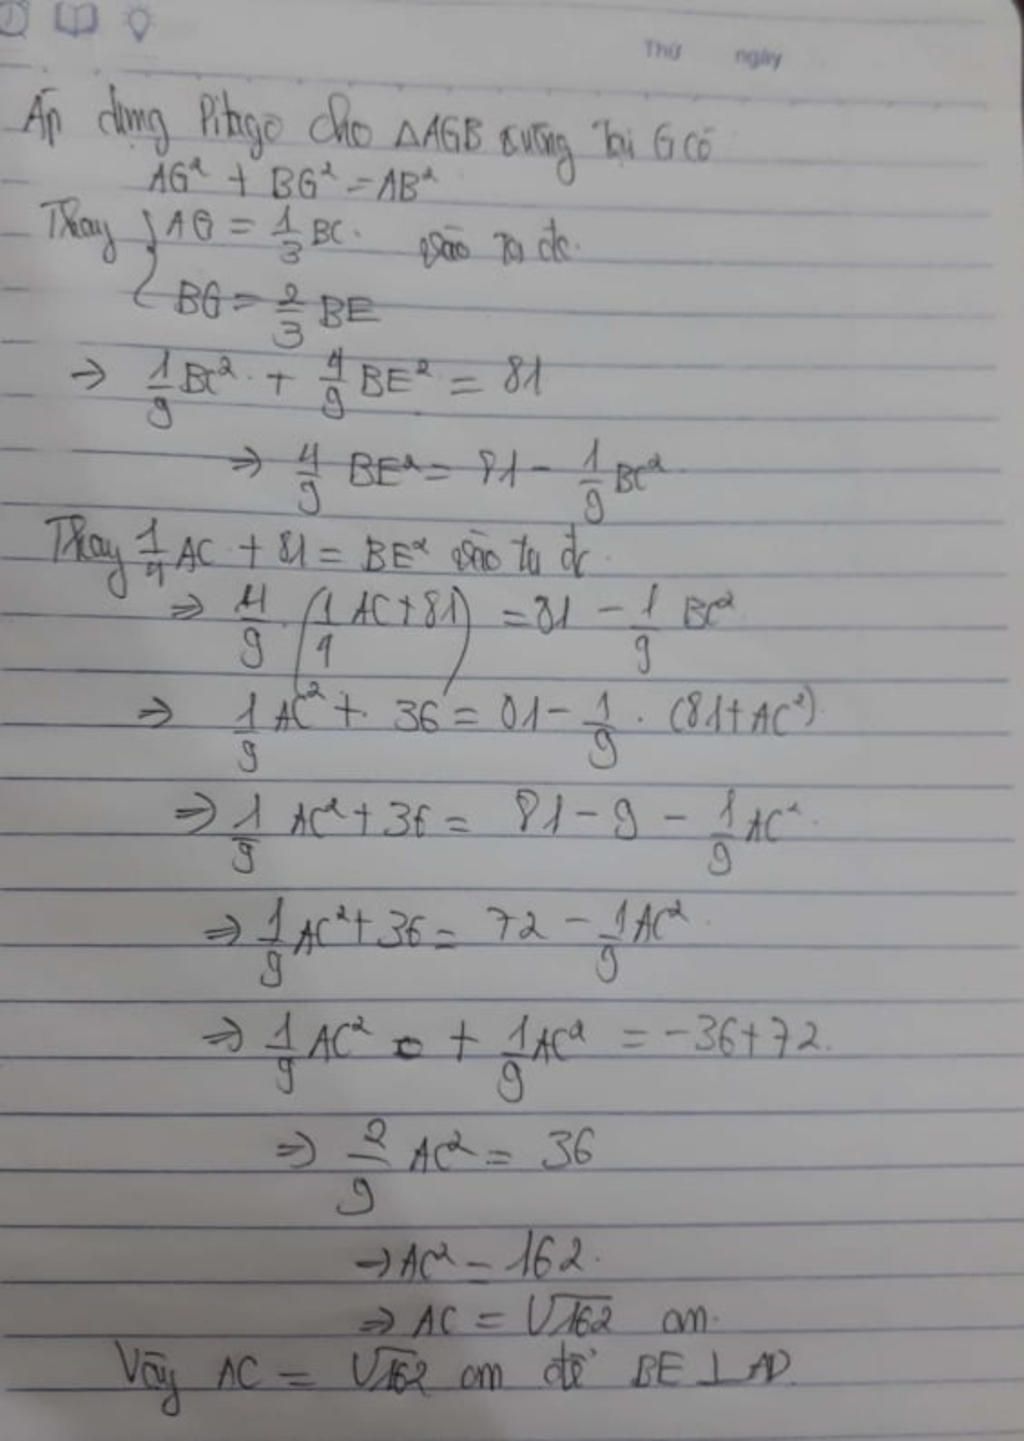 Thứ ngày
Áp dụng Pitago cho △AGB vuông tại G có
AG² + BG² = AB²
Thay { AG = 1/3 BC. vào ta đc.
BG = 2/3 BE
⇒ 1/9 BC² + 4/9 BE² = 81
⇒ 4/9 BE² = 81 - 1/9 BC²
Thay 1/4 AC + 81 = BE² vào ta đc
⇒ 4/9 (1/4 AC + 81) = 81 - 1/9 BC²
⇒ 1/9 AC² + 36 = 81 - 1/9 . (81 + AC²)
⇒ 1/9 AC² + 36 = 81 - 9 - 1/9 AC²
⇒ 1/9 AC² + 36 = 72 - 1/9 AC²
⇒ 1/9 AC² + 1/9 AC² = -36 + 72.
⇒ 2/9 AC² = 36
⇒ AC² = 162.
⇒ AC = √162 cm.
Vậy AC = √162 cm để BE ⊥ AD.